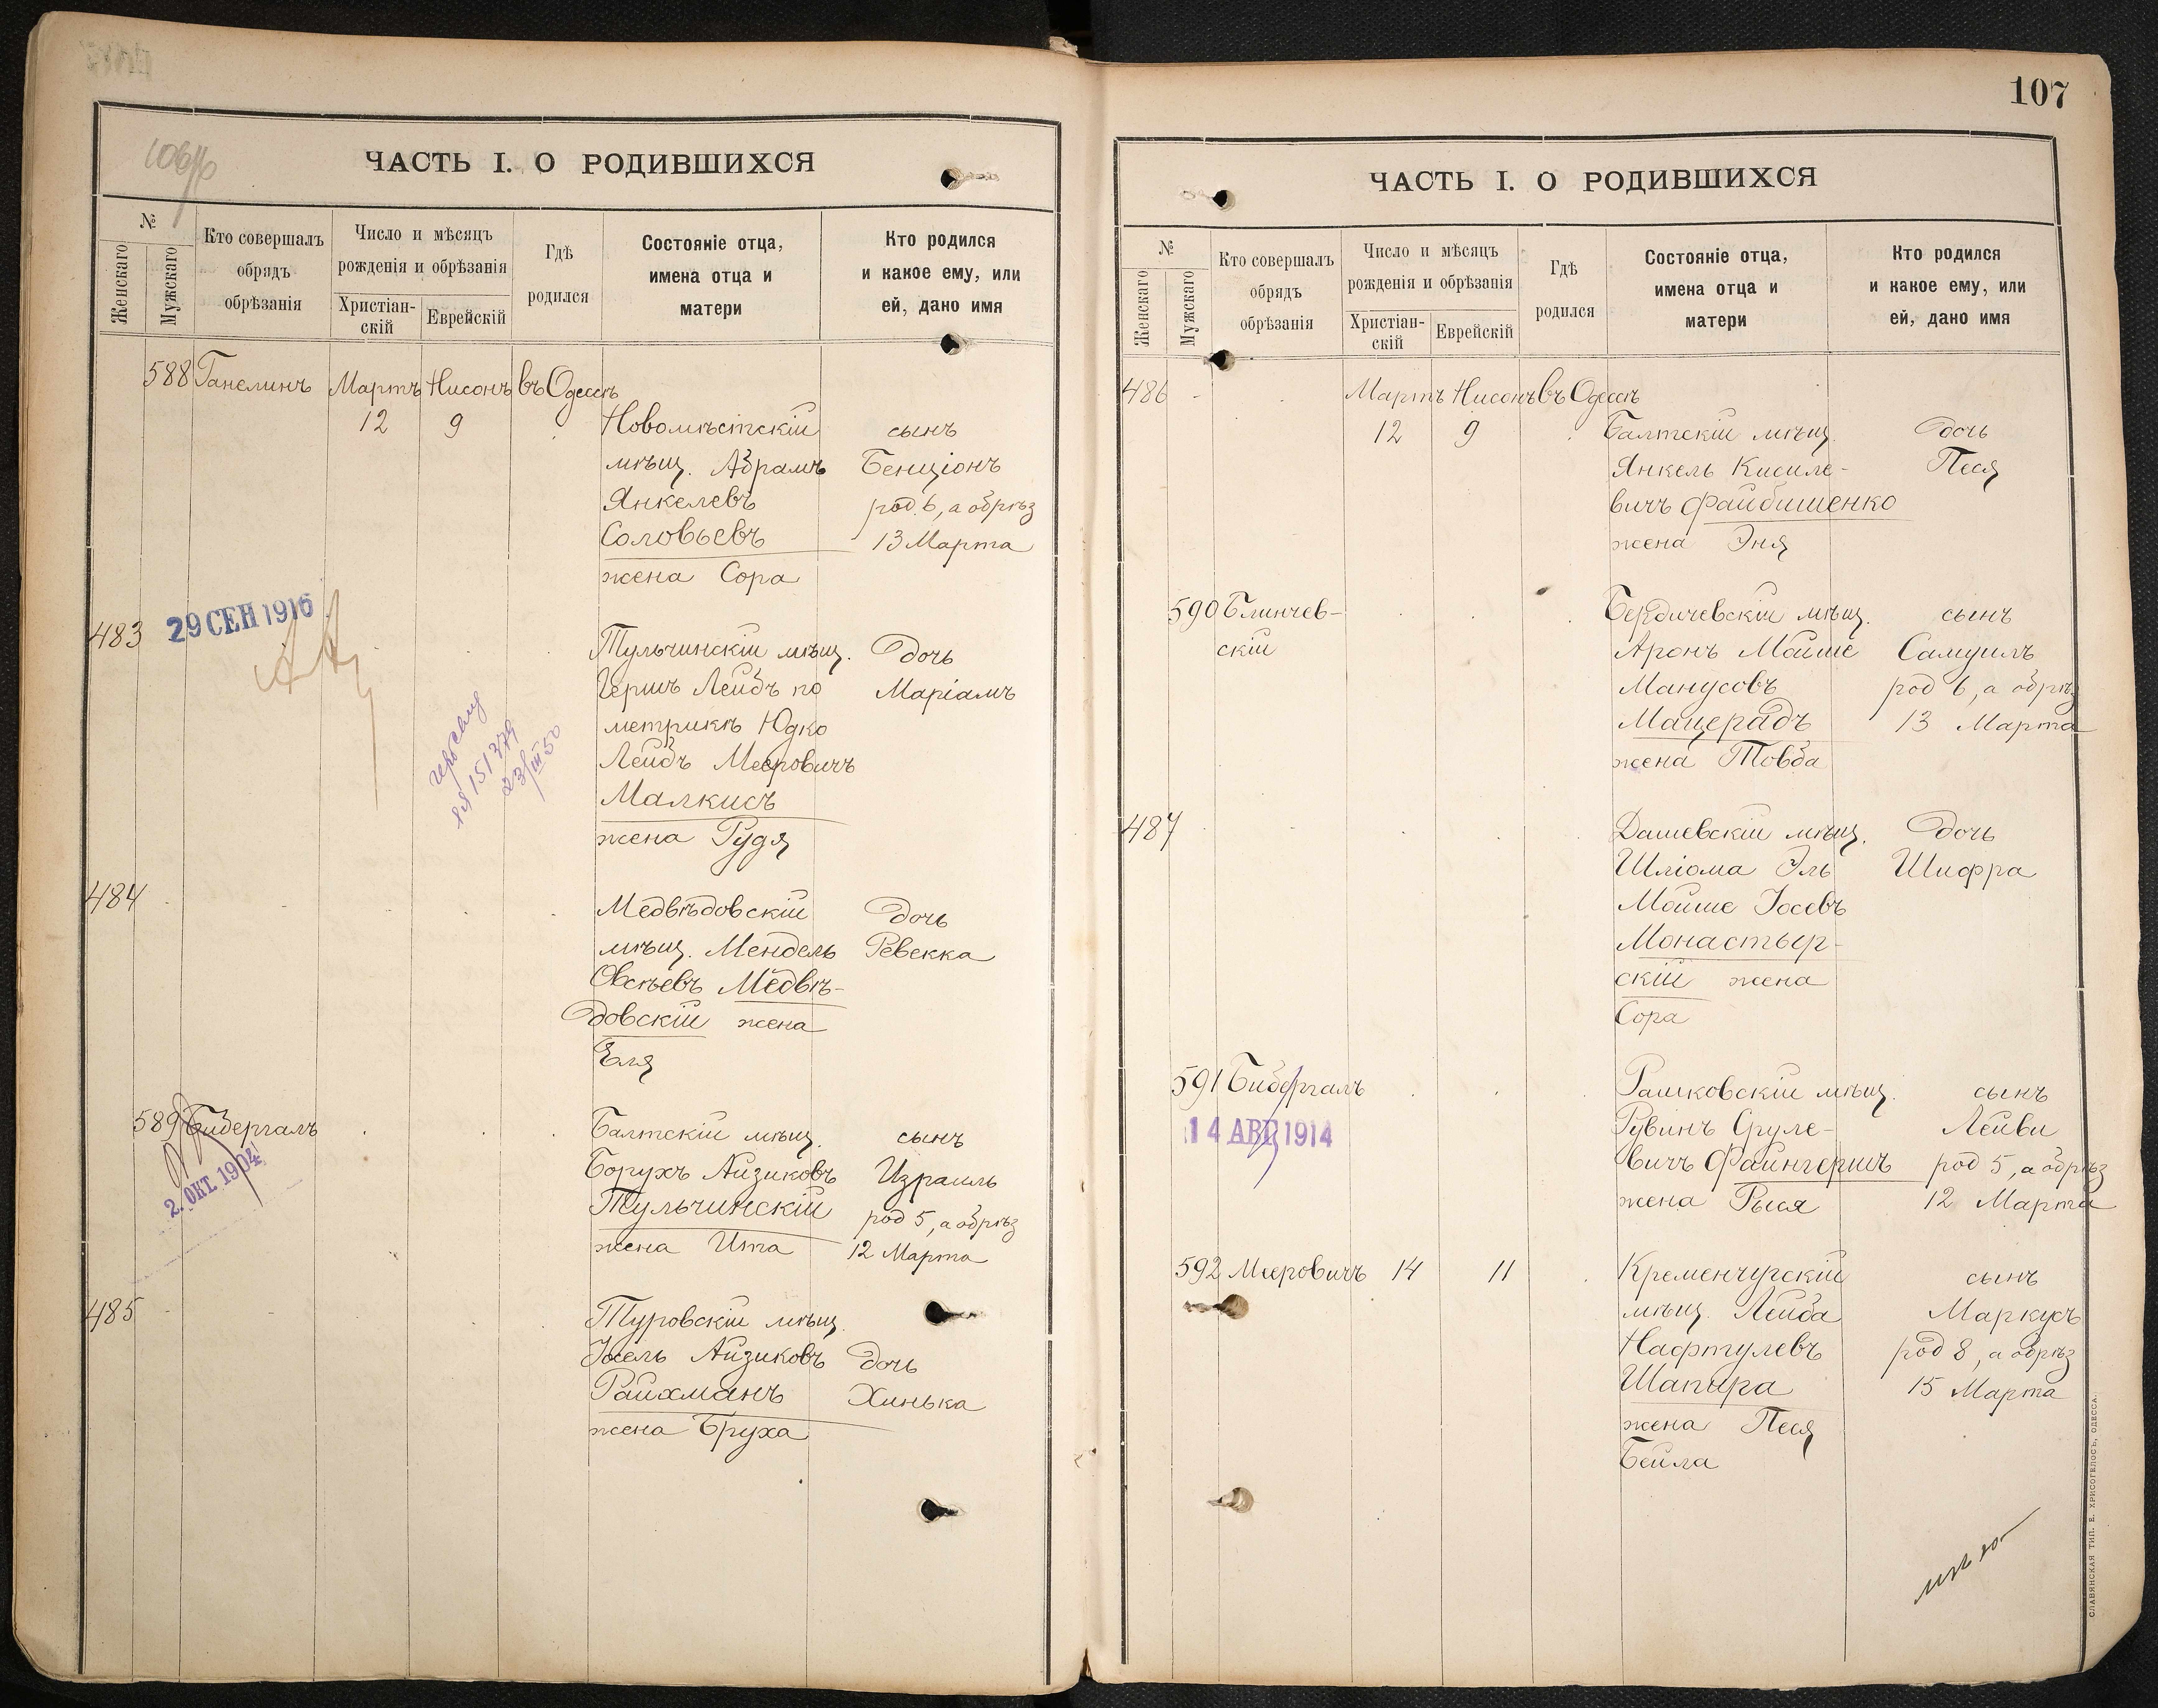 106
ЧАСТЬ I. О РОДИВШИХСЯ
№
Женскаго
Мужскаго
Кто совершалъ
обрядъ
обрѣзанія
Число и мѣсяцъ
рожденія и обрѣзанія
Христіан-
скій
Еврейскій
Гдѣ
родился
Состояніе отца,
имена отца и
матери
Кто родился
и какое ему, или
ей, дано имя
588 Ганелинъ Мартъ Нисонъ въ Одессѣ
12 9 Новомѣстскій сынъ
мѣщ. Абрамъ Бенціонъ
Янкелевъ род. 6, а обрѣз
Соловьевъ 13 Марта
жена Сора
29 СЕН 1916
483 Тульчинскій мѣщ. дочь
Гершъ Лейбъ по Маріамъ
метрикѣ Юдко
Лейбъ Мееровичъ
Малкисъ
жена Рудя
151379
23/III 50
484 Медвѣдовскій дочь
мѣщ. Мендель Ревекка
Овсѣевъ Медвѣ-
довскій жена
Еля
589 Бибергалъ Балтскій мѣщ. сынъ
2. ОКТ. 1904
Борухъ Айзиковъ Израиль
Тульчинскій род 5, а обрѣз
жена Ита 12 Марта
485 Туровскій мѣщ.
Іосель Айзиковъ дочь
Райхманъ Хинька
жена Бруха
107
ЧАСТЬ I. О РОДИВШИХСЯ
№
Женскаго
Мужскаго
Кто совершалъ
обрядъ
обрѣзанія
Число и мѣсяцъ
рожденія и обрѣзанія
Христіан-
скій
Еврейскій
Гдѣ
родился
Состояніе отца,
имена отца и
матери
Кто родился
и какое ему, или
ей, дано имя
486 Мартъ Нисонъ въ Одессѣ
12 9 Балтскій мѣщ. дочь
Янкель Кисиле- Песя
вичъ Файбишенко
жена Эня
590 Блинчев- Бердичевскій мѣщ. сынъ
скій Аронъ Мойше Самуилъ
Манусовъ род 6, а обрѣз
Мацерадъ 13 Марта
жена Товба
487 Дашевскій мѣщ. дочь
Шліома Эль Шифра
Мойше Іосевъ
Монастыр-
скій жена
Сора
591 Бибергалъ Рашковскій мѣщ. сынъ
14 АВГ 1914
Рувинъ Сруле- Лейви
вичъ Файнгершъ род 5, а обрѣз
жена Рыся 12 Марта
592 Мееровичъ 14 11 Кременчугскій сынъ
мѣщ. Лейба Маркусъ
Нафтулевъ род 8, а обрѣз
Шапира 15 Марта
жена Песя
Бейла
СЛАВЯНСКАЯ ТИП. Е. ХРИСОГЕЛОСЪ, ОДЕССА.